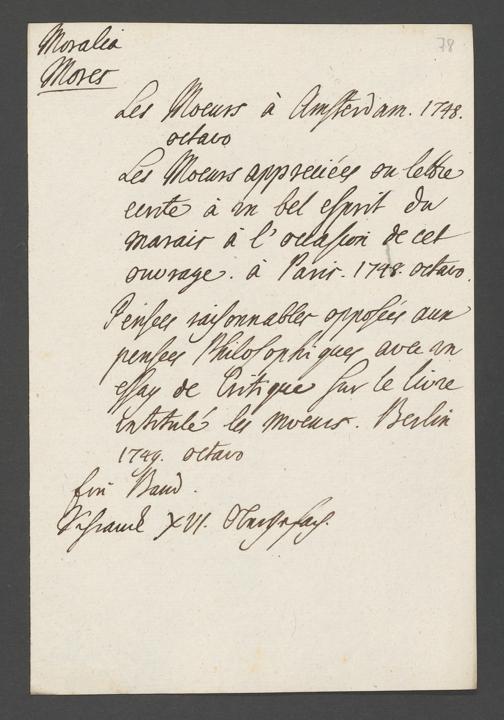 Moralia
78
Mores
Les Moeurs à Amsterdam. 1748.
octavo
Les Moeurs appreciées ou lettre
ecrite à un bel esprit du
marais à l'occasion de cet
ouvrage. à Paris. 1748. octavo.
Pensees raisonnables opposées aux
pensees Philosophiques avec un
essay de Critique sur le livre
intitulé les moeurs. Berlin
1749. octavo
Ein Band.
Schranck XVI.